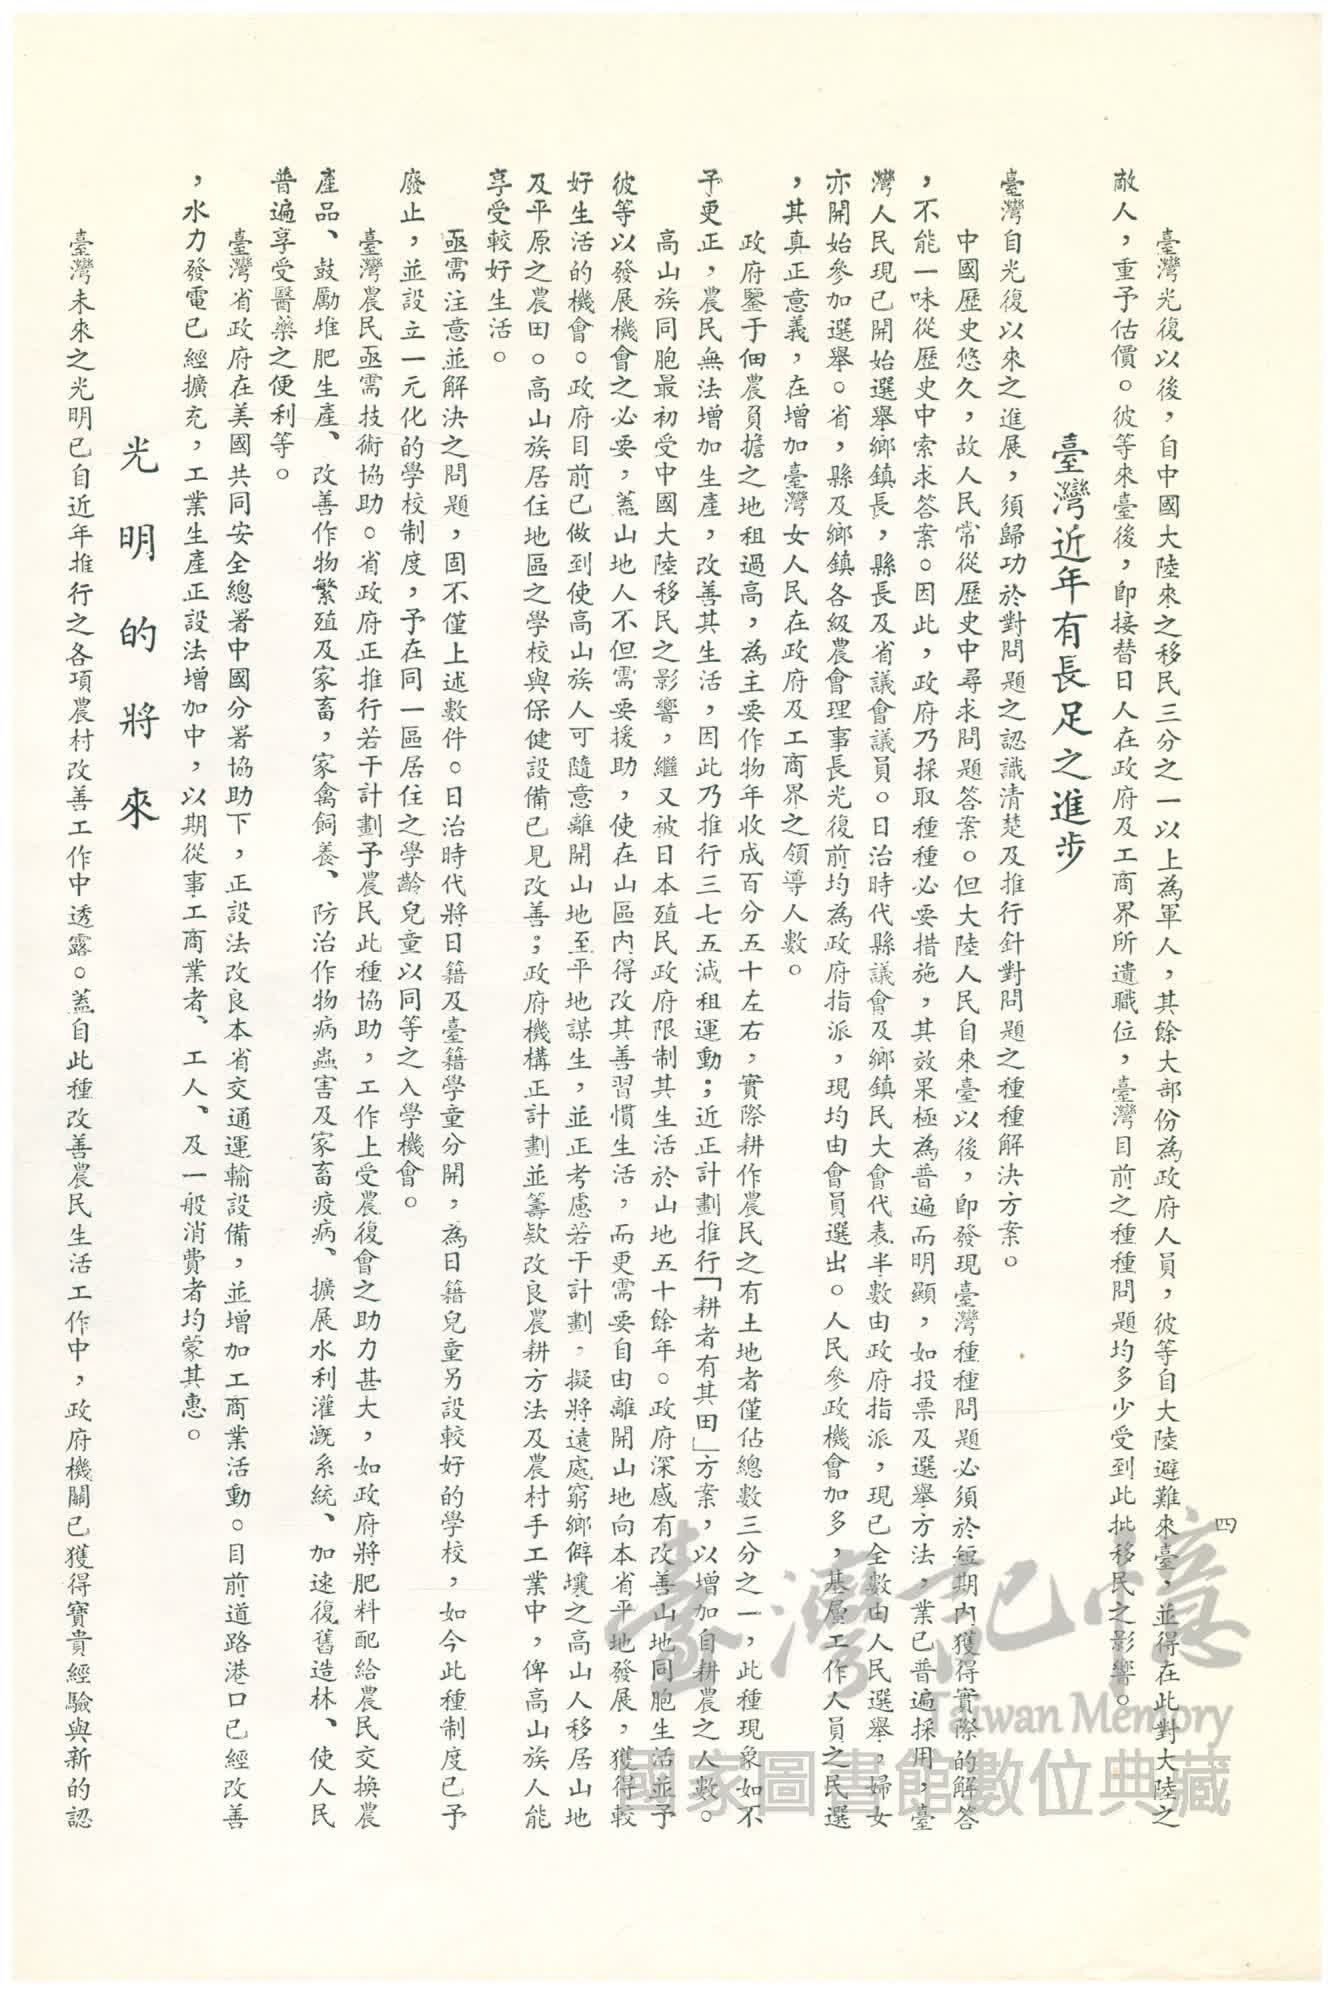 四
臺灣光復以後，自中國大陸來之移民三分之一以上為軍人，其餘大部份為政府人員，彼等自大陸避難來臺，並得在此對大陸之
敵人，重予估價。彼等來臺後，即接替日人在政府及工商界所遺職位，臺灣目前之種種問題均多少受到此批移民之影響。
臺灣近年有長足之進步
臺灣自光復以來之進展，須歸功於對問題之認識清楚及推行針對問題之種種解決方案。
中國歷史悠久，故人民常從歷史中尋求問題答案。但大陸人民自來臺以後，即發現臺灣種種問題必須於短期內獲得實際的解答
，不能一味從歷史中索求答案。因此，政府乃採取種種必要措施，其效果極為普遍而明顯，如投票及選舉方法，業已普遍採用，臺
灣人民現已開始選舉鄉鎮長，縣長及省議會議員。日治時代縣議會及鄉鎮民大會代表半數由政府指派，現已全數由人民選舉，婦女
亦開始參加選舉。省，縣及鄉鎮各級農會理事長光復前均為政府指派，現均由會員選出。人民參政機會加多，基層工作人員之民選
，其真正意義，在增加臺灣女人民在政府及工商界之領導人數。
政府鑒于佃農負擔之地租過高，為主要作物年收成百分五十左右，實際耕作農民之有土地者僅佔總數三分之一，此種現象如不
予更正，農民無法增加生產，改善其生活，因此乃推行三七五減租運動；近正計劃推行「耕者有其田」方案，以增加自耕農之人數。
高山族同胞最初受中國大陸移民之影響，繼又被日本殖民政府限制其生活於山地五十餘年。政府深感有改善山地同胞生活並予
彼等以發展機會之必要，蓋山地人不但需要援助，使在山區內得改其善習慣生活，而更需要自由離開山地向本省平地發展，獲得較
好生活的機會。政府目前已做到使高山族人可隨意離開山地至平地謀生，並正考慮若干計劃，擬將遠處窮鄉僻壤之高山人移居山地
及平原之農田。高山族居住地區之學校與保健設備已見改善；政府機構正計劃並籌欵改良農耕方法及農村手工業中，俾高山族人能
享受較好生活。
亟需注意並解決之問題，固不僅上述數件。日治時代將日籍及臺籍學童分開，為日籍兒童另設較好的學校，如今此種制度已予
廢止，並設立一元化的學校制度，予在同一區居住之學齡兒童以同等之入學機會。
臺灣農民亟需技術協助。省政府正推行若干計劃予農民此種協助，工作上受農復會之助力甚大，如政府將肥料配給農民交換農
產品、鼓勵堆肥生產、改善作物繁殖及家畜，家禽飼養、防治作物病蟲害及家畜疫病、擴展水利灌溉系統、加速復舊造林、使人民
普遍享受醫藥之便利等。
臺灣省政府在美國共同安全總署中國分署協助下，正設法改良本省交通運輸設備，並增加工商業活動。目前道路港口已經改善
，水力發電已經擴充，工業生產正設法增加中，以期從事工商業者、工人、及一般消費者均蒙其惠。
光明的將來
臺灣未來之光明已自近年推行之各項農村改善工作中透露。蓋自此種改善農民生活工作中，政府機關已獲得寶貴經驗與新的認
臺灣記憶
Taiwan Memory
國家圖書館數位典藏